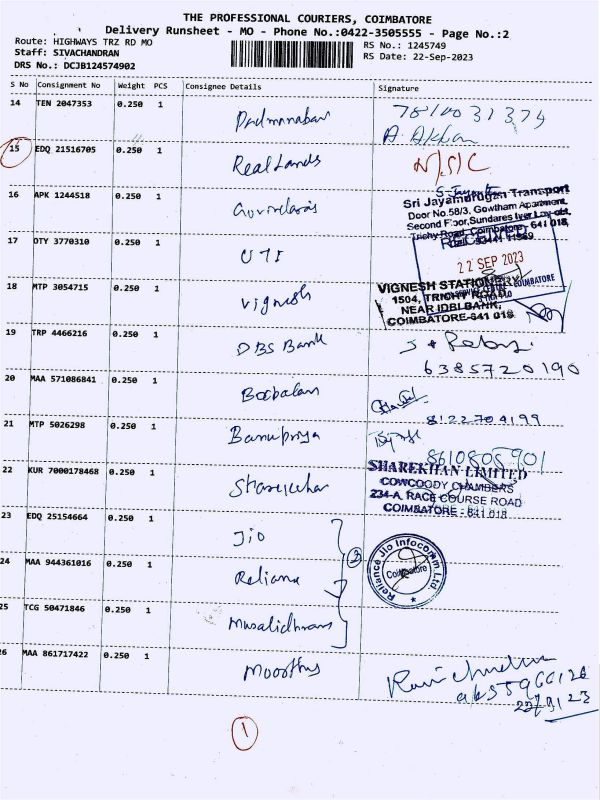 THE PROFESSIONAL COURIERS, COIMBATORE
Delivery Runsheet - MO - Phone No.:0422-3505555 - Page No.:2
Route: HIGHWAYS TRZ RD MO
RS No.: 1245749
Staff: SIVACHANDRAN
RS Date: 22-Sep-2023
DRS No.: DCJB124574902
S No Consignment No Weight PCS Consignee Details Signature
14 TEN 2047353 0.250 1 Padmanaban
15 EDQ 21516705 0.250 1 Real Lands N/S/C
16 APK 1244518 0.250 1
Sri Jayamurugan Transport
Door No.58/3, Gowtham Apartment,
Second Floor, Sundares Iyer Lay-out,
Trichy Road, Coimbatore - 641 018,
17 DTY 3770310 0.250 1 UTI
RECEIVED
22 SEP 2023
18 MTP 3054715 0.250 1 Vignesh
VIGNESH STATIONERY
1504, TRICHY ROAD,
NEAR IDBI BANK,
COIMBATORE-641 018
19 TRP 4466216 0.250 1 DBS Bank
6385720190
20 MAA 571086841 0.250 1
8122704199
21 MTP 5026298 0.250 1 Banupriya
8610805901
22 KUR 7000178468 0.250 1
SHAREKHAN LIMITED
COWCOODY CHAMBERS
234-A, RACE COURSE ROAD
COIMBATORE - 641 018
23 EDQ 25154664 0.250 1 Jio
24 MAA 944361016 0.250 1 Reliance
3
Reliance Jio Infocomm Ltd.
Coimbatore
25 TCG 50471846 0.250 1
26 MAA 861717422 0.250 1 Moorthy
1